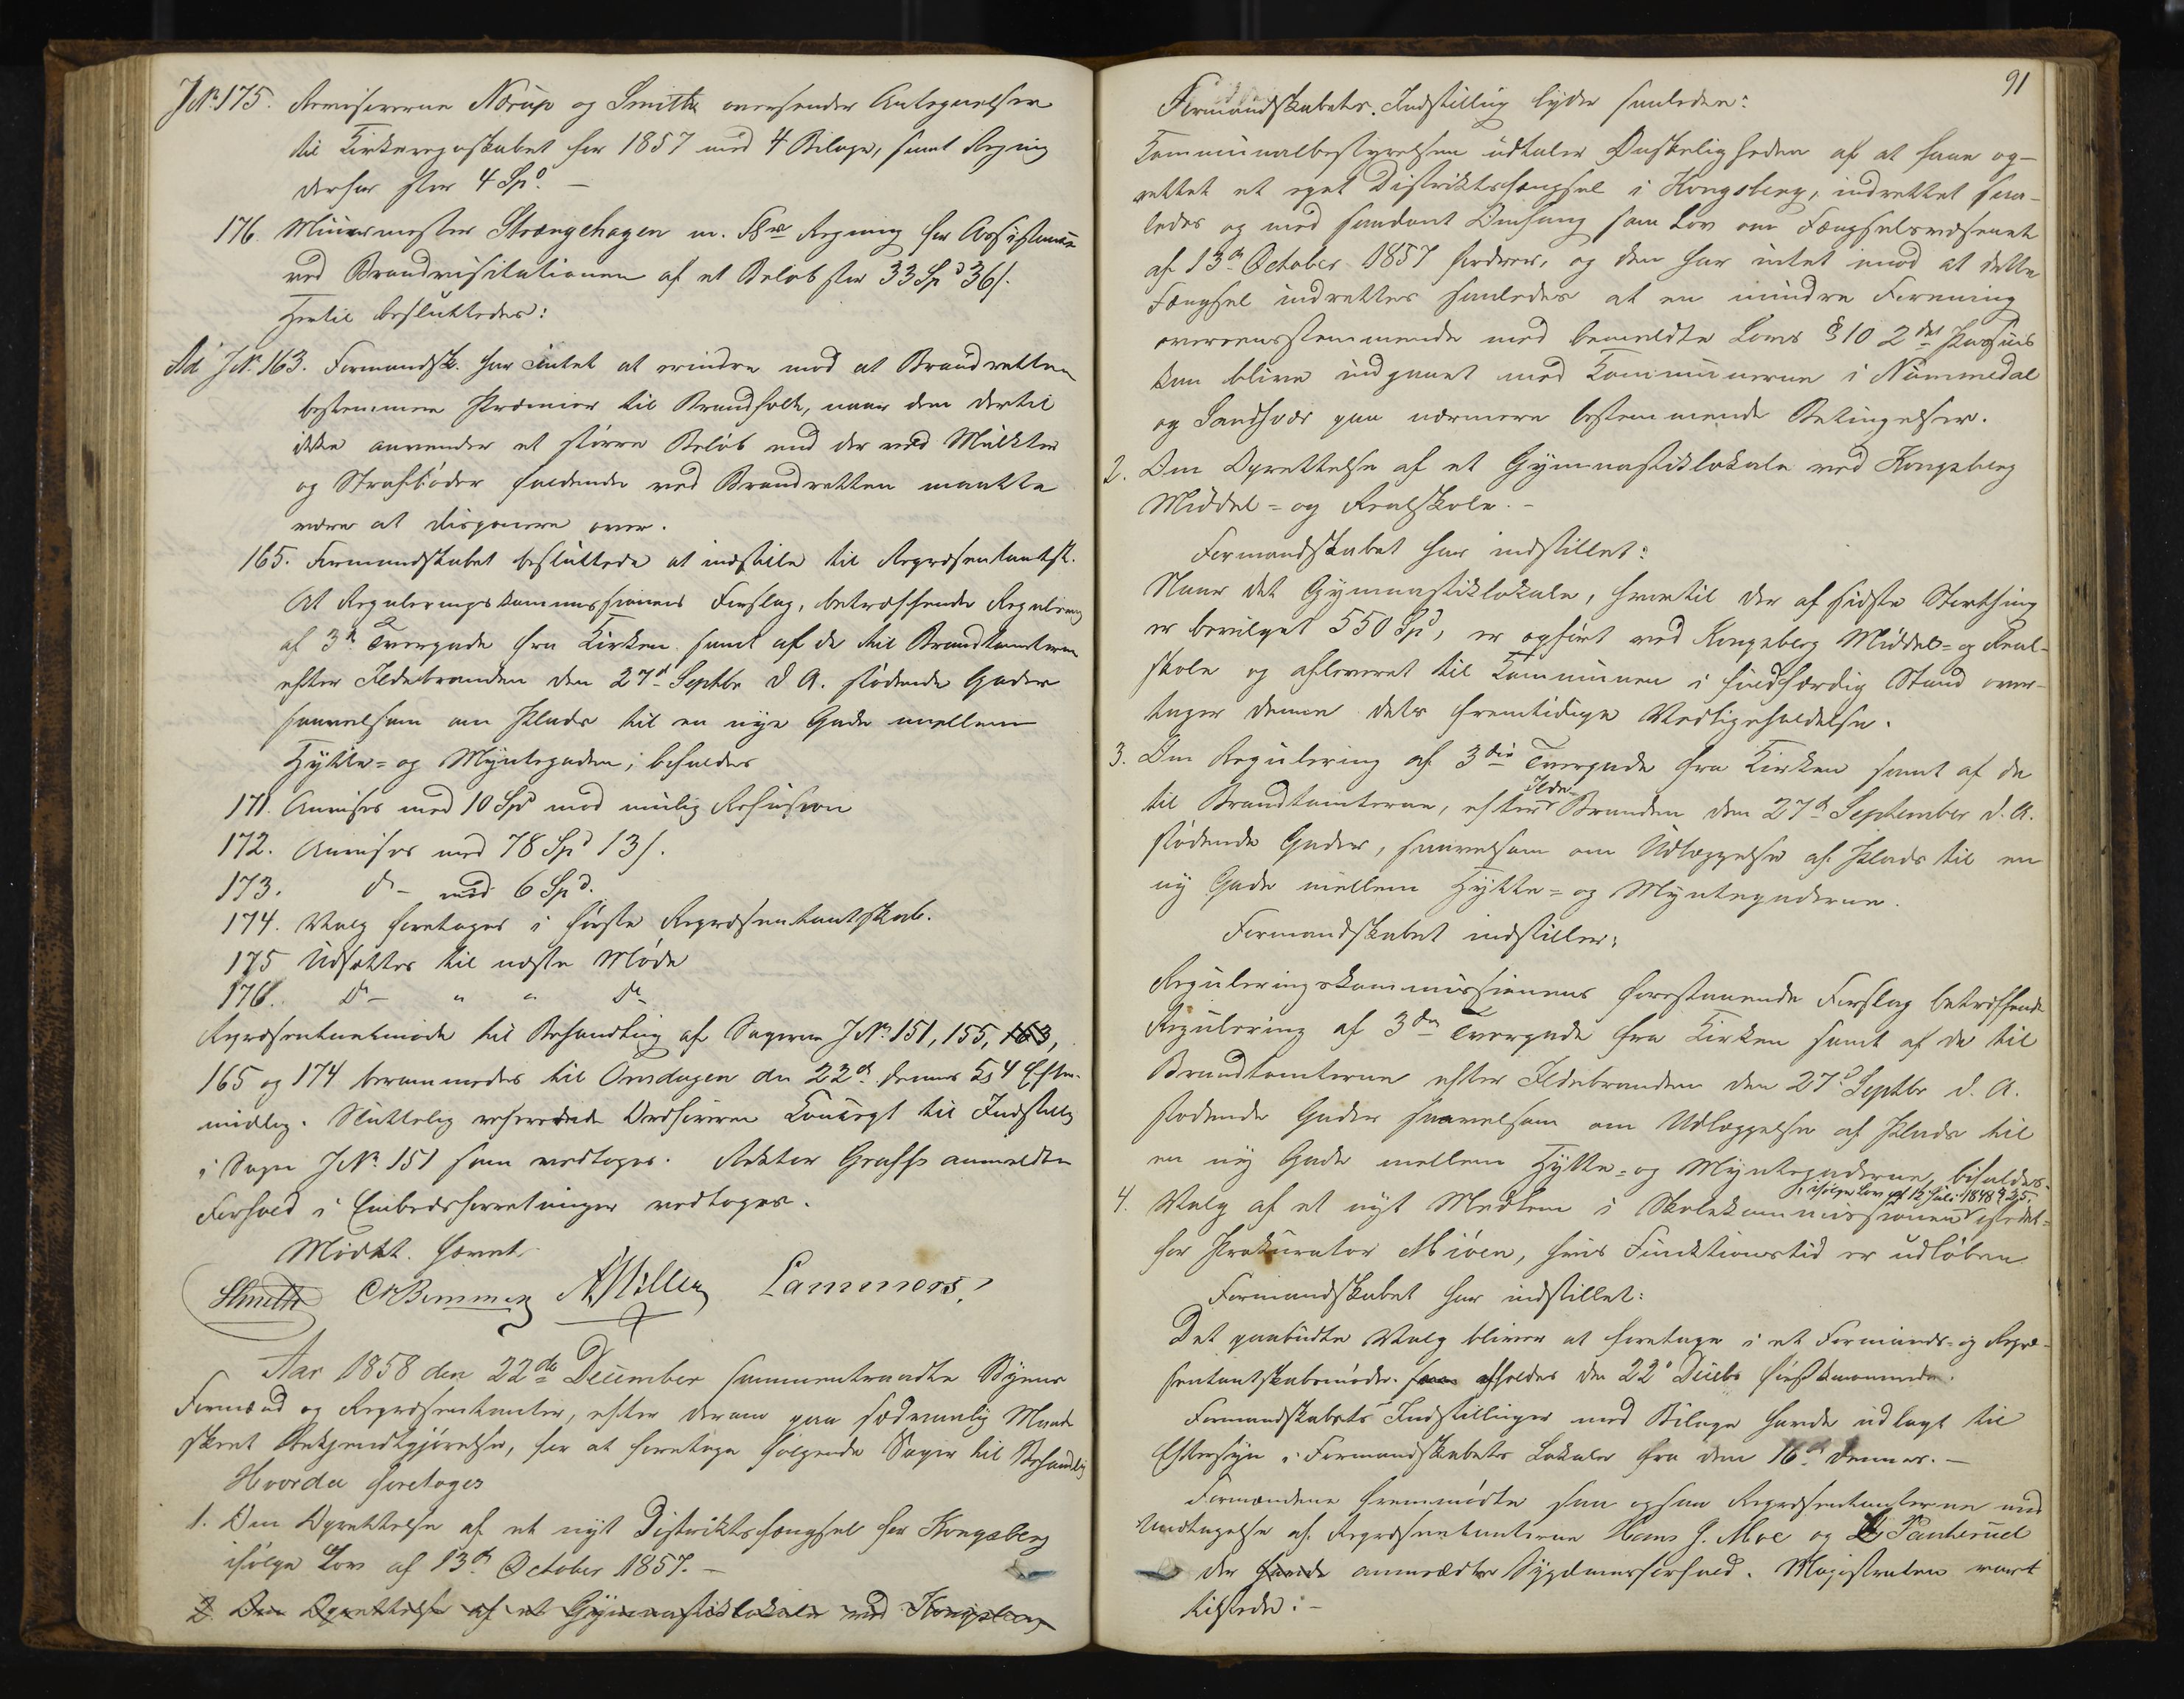 J.№ 175. Revisorerne Nørup og Smith oversender Antegnelser
til Kirkeregnskabet for 1857 med 4 Bilage, samt Regning
derfor stor 4 Spd. —
176. Muurmester Strængehagen m. Fl. Regning for Assistance
ved Brandvisitationen af et Beløb stor 33 Spd 36 s.
Hertil besluttedes:
Ad J.№ 163. Formandsk. har intet at erindre mod at Brandretten
bestemmer Præmier til Brandfolk, naar den dertil
ikke anvender et større Beløb end der ved Mulkter
og Strafbøder faldende ved Brandretten maatte
være at disponere over.
165. Formandskabet besluttede at indstille til Repræsentantsk.
At Reguleringskommissionens Forslag, betræffende Regulering
af 3die Tvergade fra Kirken samt af de til Brandtomterne
efter Ildebranden den 27d Septbr d. A. stødende Gader
saavelsom om Plads til en nye Gade mellem
Hytte- og Myntegaden, bifaldes
171. Anvises med 10 Spd mod mulig Refusion
172. Anvises med 78 Spd 13 s.
173. do — med 6 Spd.
174. Valg foretages i første Repræsentantskab.
175 Udsættes til næste Møde
176. do — " " do
Repræsentantmøde til Behandling af Sagerne J.№ 151, 155, 163,
165 og 174 berammedes til Onsdagen den 22d dennes Kl 4 Efter-
middag. Sluttelig refererede Ordføreren Koncept til Indstilling
i Sagen J.№ 151 som vedtoges. Rektor Graffs anmeldte
Forfald i Embedsforretninger vedtoges.
Mødet hævet.
SSmith CMBemmen AMüller Lammers.
Aar 1858 den 22de December sammentraadte Byens
Formænd og Repræsentanter, efter derom paa sædvanlig Maade
skeet Bekjendtgjørelse, for at foretage følgende Sager til Behandlig
Hvorda foretoges
1. Om Oprettelse af et nyt Distriktsfængsel for Kongsberg
ifølge Lov af 13d October 1857. —
2. Om Oprettelse af et Gymnastiklokale ved Kongsberg
91
Formandskabets Indstilling lyder saaledes:
Kommunalbestyrelsen udtaler Ønskeligheden af at faae op-
rettet et eget Distriktsfængsel i Kongsberg, indrettet saa-
ledes og med saadant Omfang som Lov om Fængselsvæsenet
af 13d October 1857 fordrer, og den har intet imod at dette
Fængsel indrettes saaledes at en mindre Forening
overeensstemmende med bemeldte Lovs § 10 2det Passus
kan blive indgaaet med Kommunerne i Nummedal
og Sandsvær paa nærmere bestemmende Betingelser.
2. Om Oprettelse af et Gymnastiklokale ved Kongsberg
Middel- og Realskole. —
Formandskabet har indstillet:
Naar det Gymnastiklokale, hvortil der af sidste Storthing
er bevilget 550 Spd, er opført ved Kongsberg Middel- og Real-
skole og afleveret til Kommunen i fuldfærdig Stand over-
tager denne dets fremtidige Vedligeholdelse.
3. Om Regulering af 3die Tvergade fra Kirken samt af de
til Brandtomterne, efter Ilde Branden den 27d September d. A.
stødende Gader, saavelsom om Udlæggelse af Plads til en
ny Gade mellem Hytte- og Myntegaderne.
Formandskabet indstiller:
Reguleringskommissionens forestaaende Forslag betræffende
Regulering af 3die Tvergade fra Kirken samt af de til
Brandtomterne efter Ildebranden den 27d Septbr d. A.
stødende Gader saavelsom om Udlæggelse af Plads til
en ny Gade mellem Hytte- og Myntegaderne, bifaldes.
, ifølge Lov af 12 Juli 1848 § 25,
4. Valg af et nyt Medlem i Skolekommissionen istedet-
for Prokurator Miøen, hvis Funktionstid er udløben
Formandskabet har indstillet:
Det paabudte Valg bliver at foretage i et Formands- og Repræ-
sentantskabsmøde som afholdes den 22d Decbr førstkommende.
Formandskabets Indstillinger med Bilage havde udlagt til
Eftersyn i Formandskabets Lokale fra den 16d dennes. —
Formændene fremmødte saa ogsaa Repræsentanterne med
Undtagelse af Repræsentanterne Hans G. Moe og L. Panterud
der havde anmeldte Sygdomsforfald. Magistraten var
tilstede: —